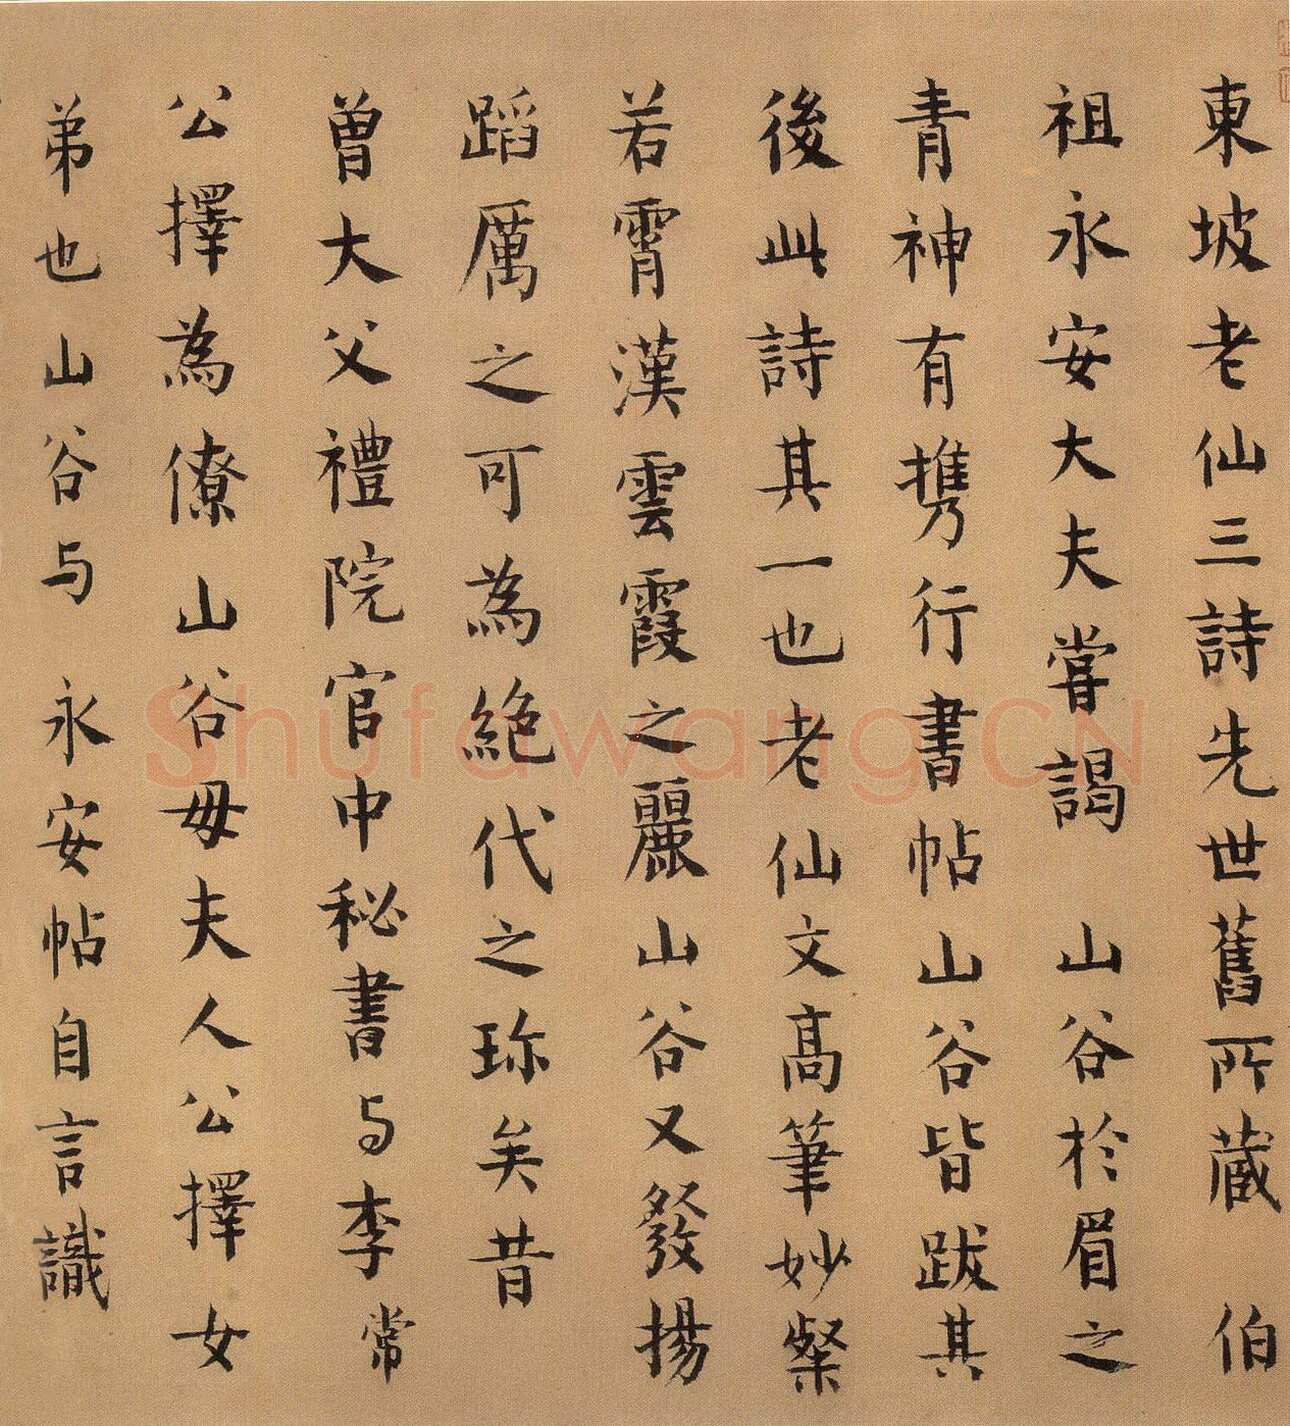 東坡老仙三詩先世舊所藏 伯
祖永安大夫嘗謁 山谷於眉之
青神有携行書帖山谷皆跋其
後此詩其一也老仙文高筆妙粲
若霄漢雲霞之麗山谷又發揚
蹈厲之可為絕代之珎矣昔
曾大父禮院官中秘書与李常
公擇為僚山谷母夫人公擇女
弟也山谷与 永安帖自言識
Shufawang.CN